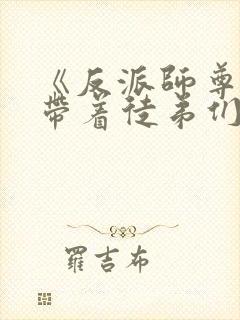 《反派師尊
帶著徒弟們
羅吉布